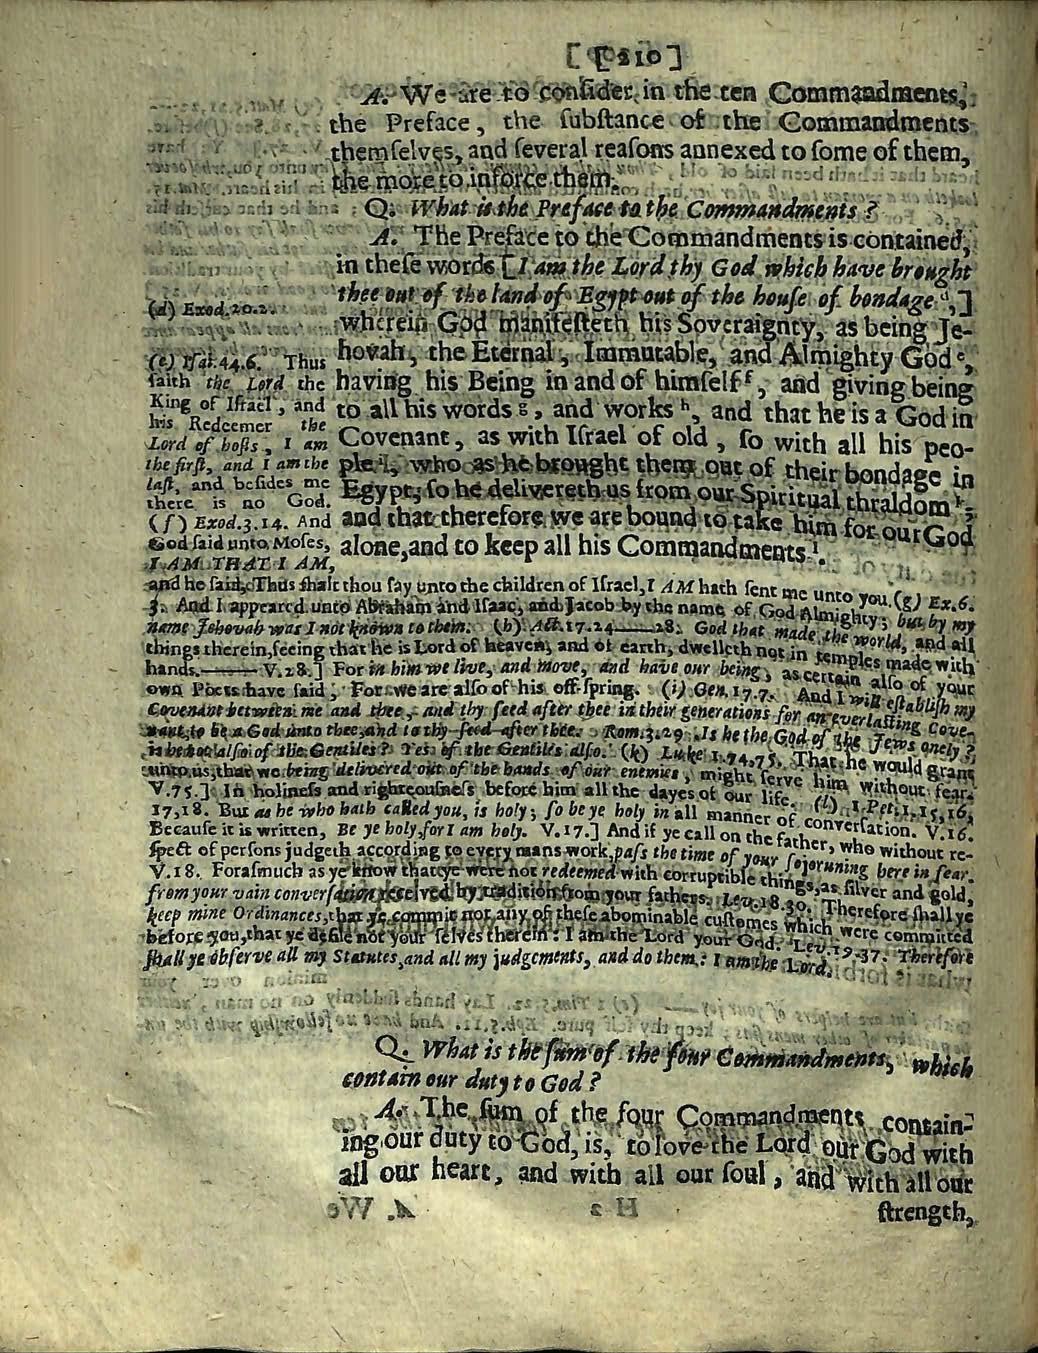 [210]
A. We are to conſider in the ten Commandments,
the Preface, the ſubſtance of the Commandments
themſelves, and ſeveral reaſons annexed to ſome of them,
the more to inforce them.
Q. What is the Preface to the Commandments?
A. The Preface to the Commandments is contained,
in theſe words [I am the Lord thy God which have brought
thee out of the land of Egypt out of the houſe of bondage ᵈ,]
wherein God manifeſteth his Soveraignty, as being Je-
hovah, the Eternal, Immutable, and Almighty God ᵉ,
having his Being in and of himſelf ᶠ, and giving being
to all his words ᵍ, and works ʰ, and that he is a God in
Covenant, as with Iſrael of old, ſo with all his peo-
ple ⁱ, who as he brought them out of their bondage in
Egypt, ſo he delivereth us from our Spiritual thraldom ᵏ;
and that therefore we are bound to take him for our God
alone, and to keep all his Commandments ˡ.
(d) Exod.20.2.
(e) Iſai.44.6. Thus
ſaith the Lord the
King of Iſrael, and
his Redeemer the
Lord of hoſts, I am
the firſt, and I am the
laſt, and beſides me
there is no God.
(f) Exod.3.14. And
God ſaid unto Moſes,
I AM THAT I AM,
and he ſaid, Thus ſhalt thou ſay unto the children of Iſrael, I AM hath ſent me unto you. (g) Ex.6.
3. And I appeared unto Abraham and Iſaac, and Jacob by the name of God Almighty; but by my
name Jehovah was I not known to them. (h) Act.17.24——28. God that made the world, and all
things therein, ſeeing that he is Lord of heaven, and of earth, dwelleth not in temples made with
hands.——V.28.] For in him we live, and move, and have our being, as certain alſo of your
own Poets have ſaid, For we are alſo of his off-ſpring. (i) Gen.17.7. And I will eſtabliſh my
Covenant between me and thee, and thy ſeed after thee in their generations for an everlaſting Cove-
nant, to be a God unto thee, and to thy ſeed after thee. Rom.3.29. Is he the God of the Jews onely?
is he not alſo of the Gentiles? Yes, of the Gentiles alſo. (k) Luke 1.74,75. That he would grant
unto us, that we being delivered out of the hands of our enemies, might ſerve him without fear.
V.75.] In holineſs and righteouſneſs before him all the dayes of our life. (l) 1.Pet.1.15,16,
17,18. But as he who hath called you, is holy; ſo be ye holy in all manner of converſation. V.16.
Becauſe it is written, Be ye holy, for I am holy. V.17.] And if ye call on the father, who without re-
ſpect of perſons judgeth according to every mans work, paſs the time of your ſojorning here in fear.
V.18. Foraſmuch as ye know that ye were not redeemed with corruptible things, as ſilver and gold,
from your vain converſation received by tradition from your fathers. Lev.18.30. Therefore ſhall ye
keep mine Ordinances, that ye commit not any of theſe abominable cuſtomes which were committed
before you, that ye defile not your ſelves therein: I am the Lord your God. Lev.19.37. Therefore
ſhall ye obſerve all my Statutes, and all my judgements, and do them: I am the Lord.
Q. What is the ſum of the four Commandments, which
contain our duty to God?
A. The ſum of the four Commandments contain-
ing our duty to God, is, to love the Lord our God with
all our heart, and with all our ſoul, and with all our
ſtrength,